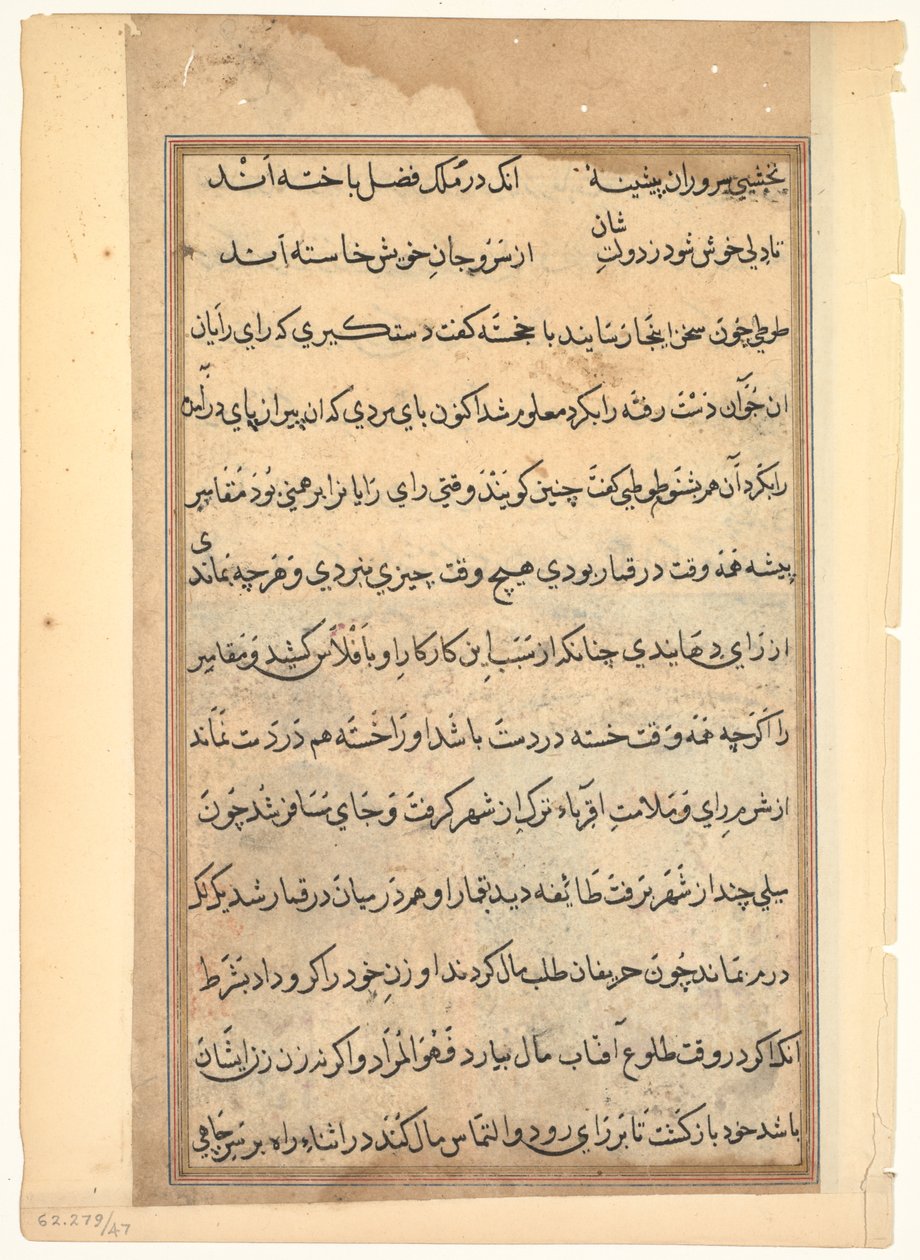 نخشبي سروران پیشینهٔ انک در ملک فضل باخته اَنْد
تادلي خوش شود ز دولتِ شان از سَرَوجانِ خویش خاسته اَند
طوطي چُون سخن اینجا رَسَانید با خجَسْته کفت دستکیري که راي رَایان
ان جُوَان دَسْت رفته را بکرد معلوم شد اکنون باي مردي که ان پیر از پاي درآمده
رابکَرد آن هم بشنَو طوطي کفتَ چنین کویَنْدَ وقتي راي رَایانرا برهمني بُودَ مُقَامِر
پیشه هَمَه وقت در قمار بودي هیچ وقت چیزي نبردي وَهَرچه بماندي
از رَاي دِهَانیدي چنانکه از سَبَب اِین کار کارِ او باَفْلاَس کَشِید وَ مُقامِر
را اَکَرچه هَمَه وَقت خسته در دستَ باشَد او رَا خَسْتَه هم دَر دَست نَمَاند
از شرم رِاي وَ مَلامتِ اقرِباء ترک اِز شهر کرفتَ وَجَاي مُسَافر شُد چُونَ
میلي چند از شَهَر بَرفتَ طَائفه دید بقمار او هم دَر میانَ در قمار شد یک لک
درم بمَاند چُونَ حریفان طلب مال کردند او زنِ خود را کرو داد بَشَرَط
انکه اکر در وقت طلوع آفتاب مَال بیارد فَهْوَالمُرَاد و اکر نه زن زنِ ایشَانَ
باشد خود باز کَشت تَا بَر رَاي رود و التمَاس مال کُنَد در اثناءِ راه بر سَرِ چَاهي
62.279/47